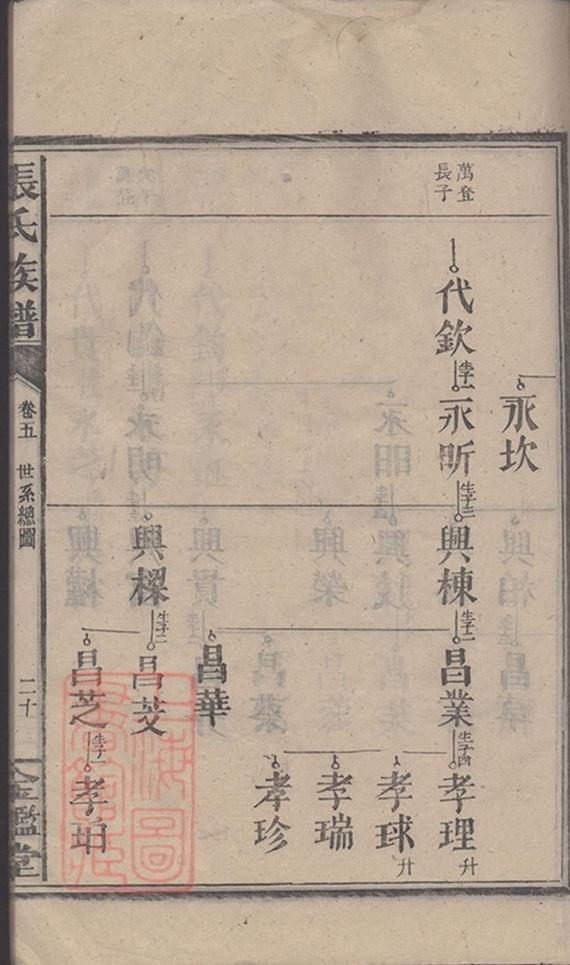 萬登
長子
永坎
代欽
生子一
永昕
生子二
興棟
生子二
昌業
生子四
孝理
升
孝球
升
孝瑞
孝珍
昌華
興樑
生子二
昌芝
生子一
孝珀
張氏族譜
卷五
世系總圖
二十
金鑑堂